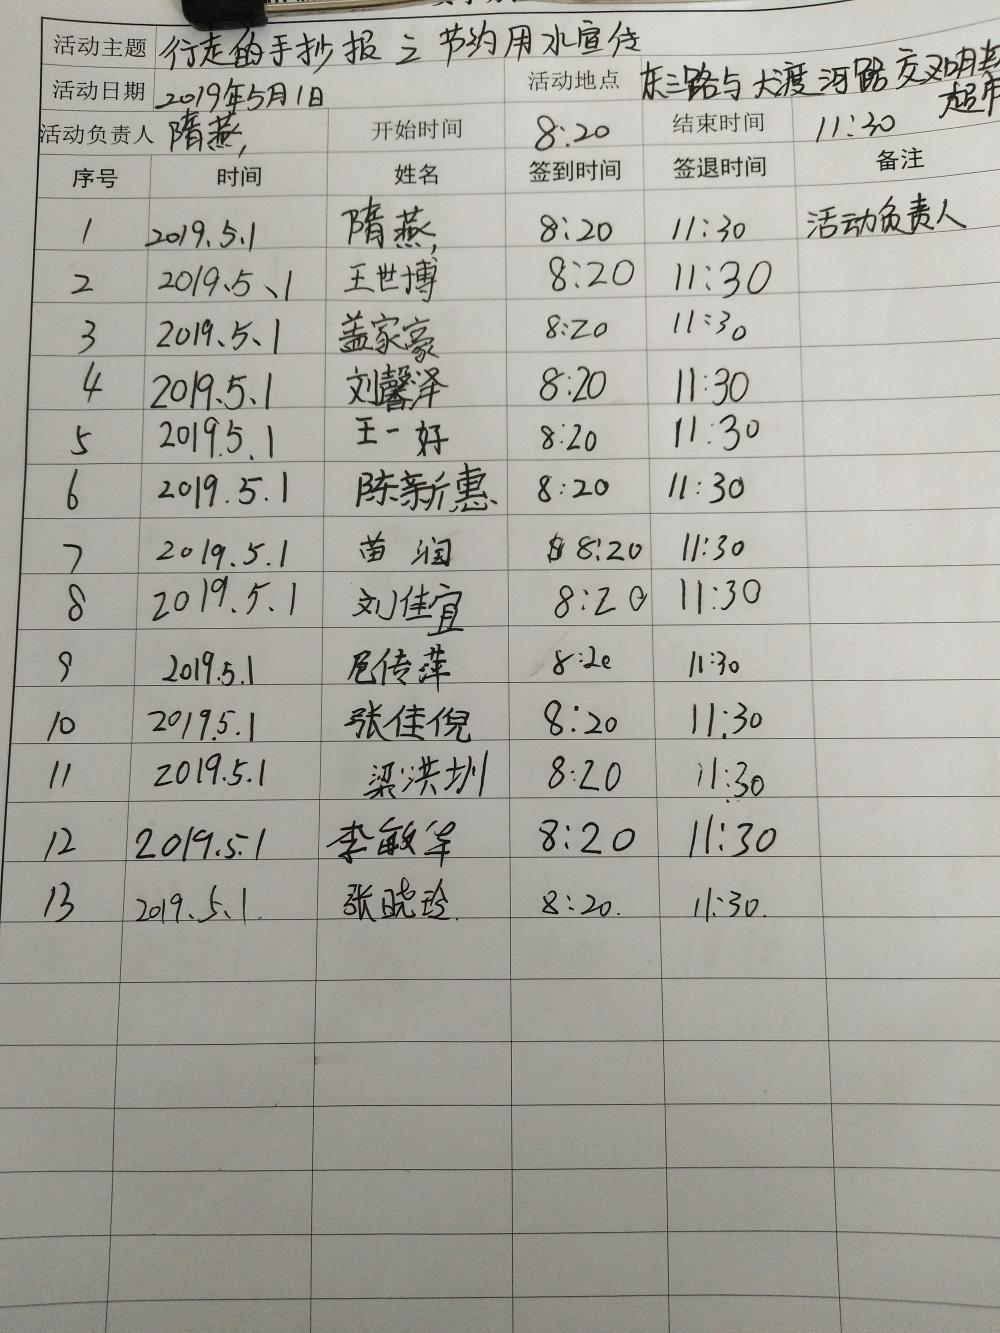 活动主题 行走的手抄报之节约用水宣传
活动日期 2019年5月1日 活动地点 东三路与大渡河路交叉明 超市
活动负责人 隋燕 开始时间 8:20 结束时间 11:30
序号 时间 姓名 签到时间 签退时间 备注
1 2019.5.1 隋燕 8:20 11:30 活动负责人
2 2019.5、1 王世博 8:20 11:30
3 2019、5、1 盖家豪 8:20 11:30
4 2019.5.1 刘馨泽 8:20 11:30
5 2019.5.1 王一好 8:20 11:30
6 2019.5.1 陈新惠 8:20 11:30
7 2019.5.1 苗润 8:20 11:30
8 2019.5.1 刘佳宜 8:20 11:30
9 2019.5.1 传萍 8:20 11:30
10 2019.5.1 张佳倪 8:20 11:30
11 2019.5.1 梁洪圳 8:20 11:30
12 2019.5.1 李敏华 8:20 11:30
13 2019.5.1. 张晓玲. 8:20. 11:30.